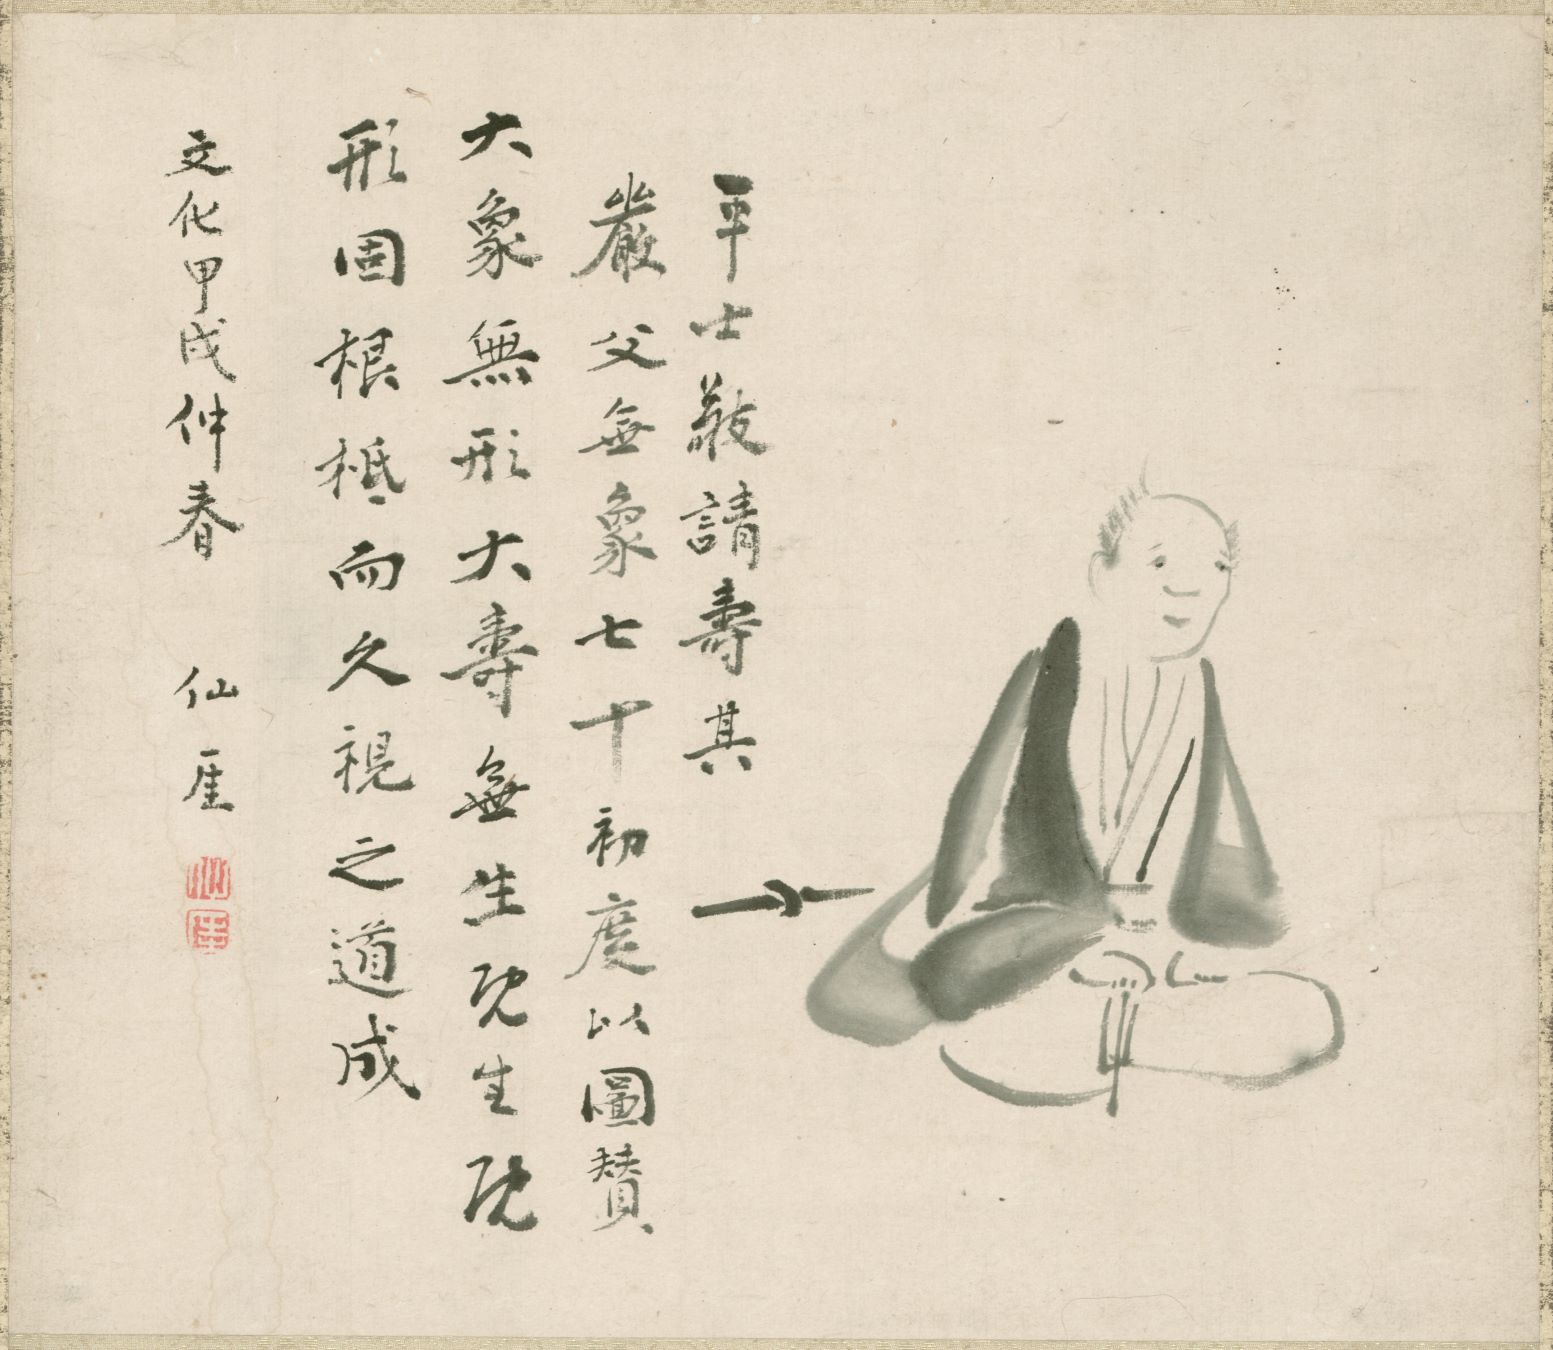 平士敬請壽其
嚴父無象七十初度以圖贊
大象無形大壽無生既生既
形固根柢而久視之道成
文化甲戌仲春　仙厓